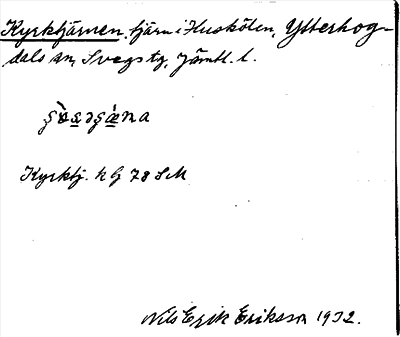 Kyrktjärnen, tjärn i Huskölen, Ytterhog-
dals sn, Svegs tg, Jämtl. l.
Kyrktj. h G 78 SM
Nils Erik Erikson 1932.